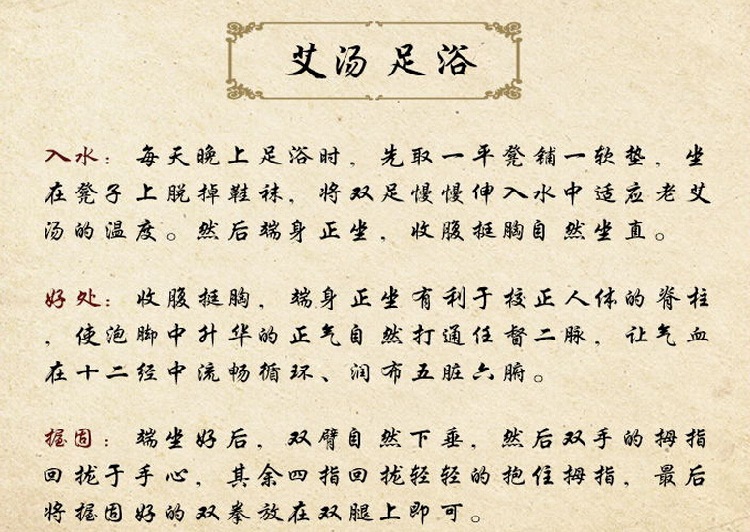 艾汤足浴
入水：每天晚上足浴时，先取一平凳铺一软垫，坐
在凳子上脱掉鞋袜，将双足慢慢伸入水中适应老艾
汤的温度。然后端身正坐，收腹挺胸自然坐直。
好处：收腹挺胸，端身正坐有利于校正人体的脊柱
，使泡脚中升华的正气自然打通任督二脉，让气血
在十二经中流畅循环、润布五脏六腑。
握固：端坐好后，双臂自然下垂，然后双手的拇指
回拢于手心，其余四指回拢轻轻的抱住拇指，最后
将握固好的双拳放在双腿上即可。